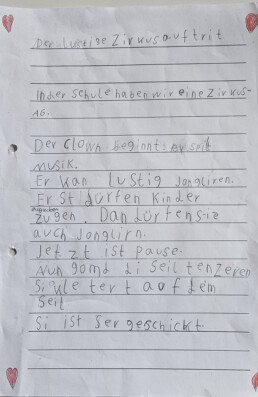 Der lustige Zirkusauftrit
In der Schule haben wir eine Zirkus-
AG.
Der Clown beginnt: er spilt
musik.
Er kan lustig Jongliren.
Er st dürfen Kinder
zugen. Dan dürfen siz
auch Jonglirn.
Jetzt ist pause
Nun gomd di Seil tenzeren
Si kletert auf dem
Seil
Si ist Ser geschickt